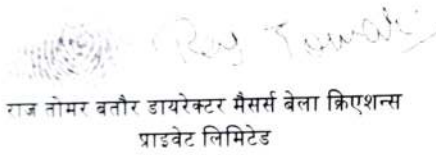 Raj Tomar
राज तोमर बतौर डायरेक्टर मैसर्स बेला क्रिएशन्स
प्राइवेट लिमिटेड